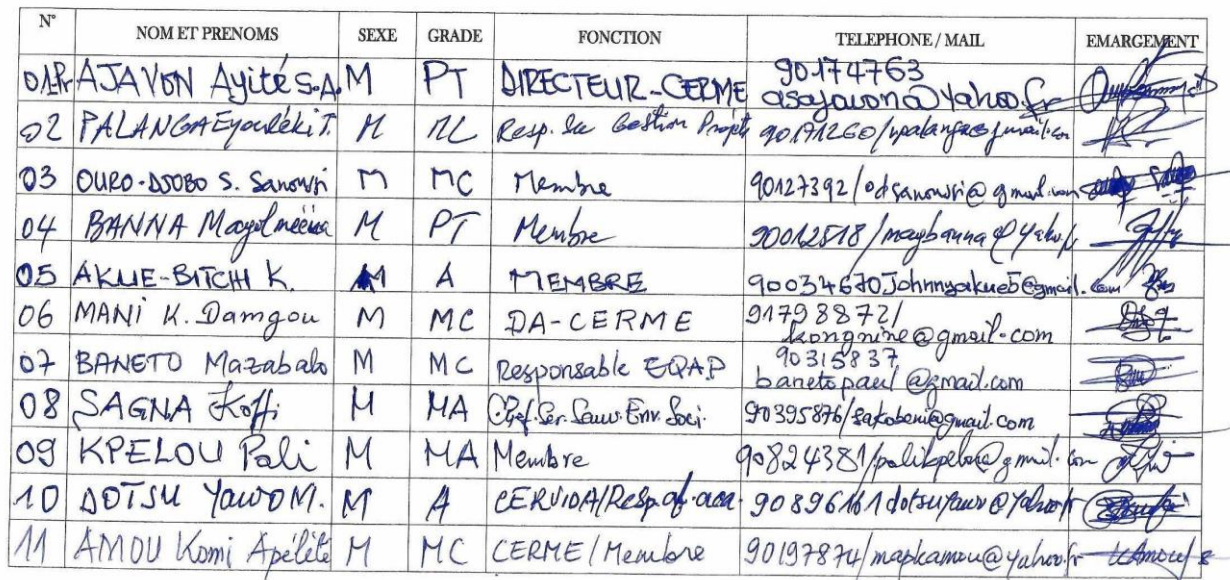 N° NOM ET PRENOMS SEXE GRADE FONCTION TELEPHONE / MAIL EMARGEMENT
01 Pr AJAVON Ayité S.A. M PT DIRECTEUR-CERME 90174763
asajavon@yahoo.fr
02 PALANGA Eyouléki T. M MC Resp. de Gestion Projets 90171260/
03 OURO-DJOBO S. Sanoussi M MC Membre 90127392/odsanoussi@gmail.com
04 BANNA M PT Membre 90012518/maybanna@yahoo.fr
05 AKUE-BITCHI K. M A MEMBRE 90034670 Johnnyakue5@gmail.com
06 MANI K. Damgou M MC DA-CERME 91798872/
kongnine@gmail.com
07 BANETO Mazabalo M MC Responsable EQAP 90315837
banetopaul@gmail.com
08 SAGNA Koffi M MA Chef. Ser. Sauv. Env. Soci. 90395876/sakobeni@gmail.com
09 KPELOU Pali M MA Membre 90824381/palikpelou@gmail.com
10 DOTSU Yawo M. M A CERVIDA/Resp. 90896161 dotsuyawo@yahoo.fr
11 AMOU Komi Apélété M MC CERME/Membre 90197874/mapkamou@yahoo.fr